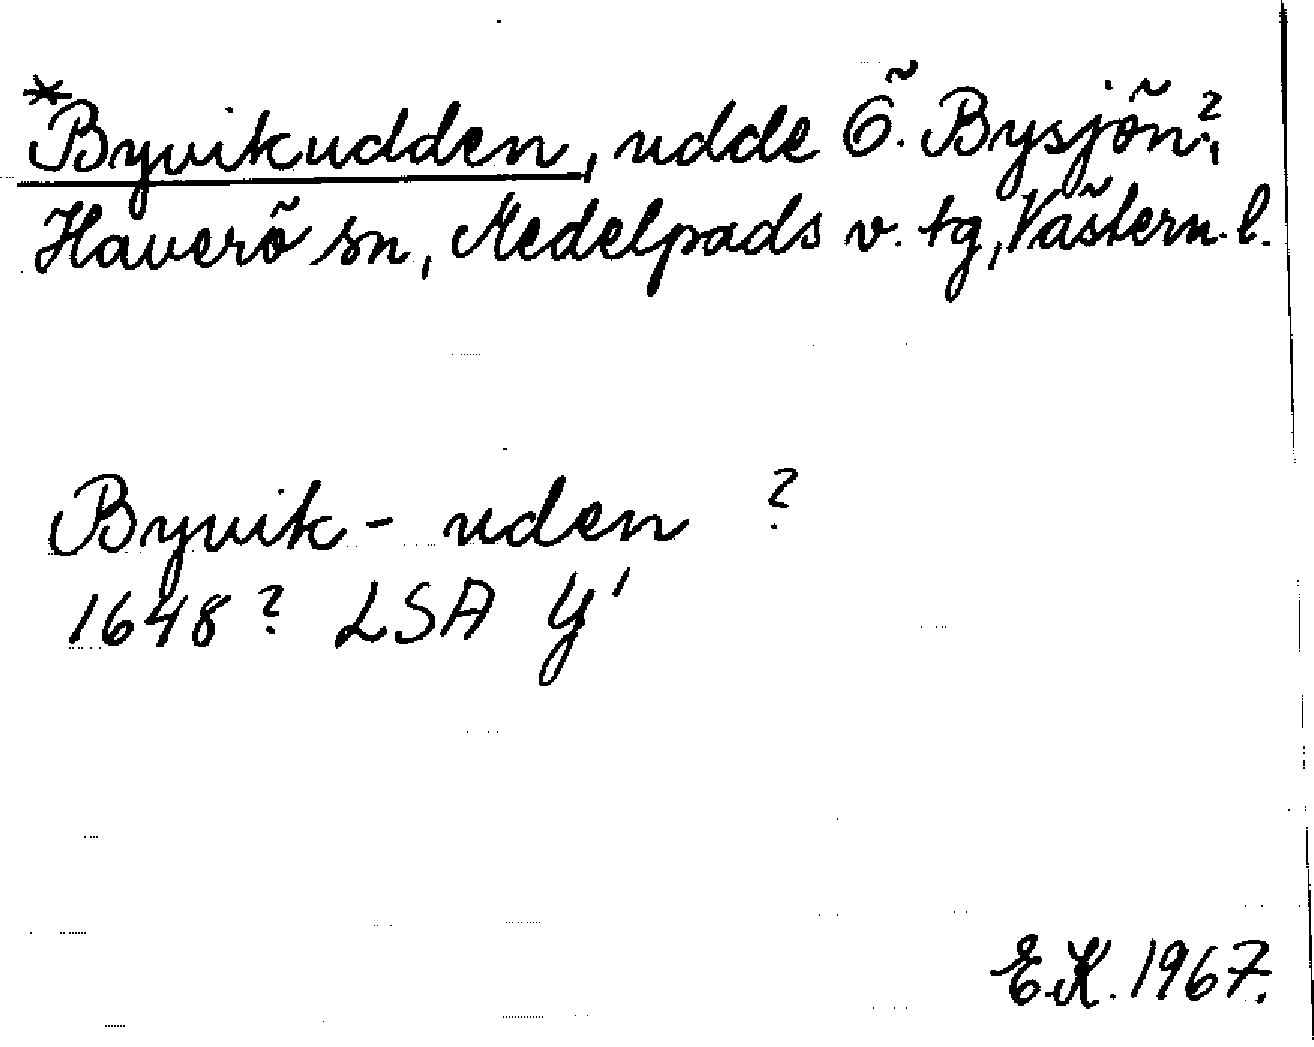 *Byvikudden, udde Ö. Bysjön?,
Haverö sn, Medelpads v. tg, Västern. l.
Byvik - uden ?
1648? LSA Y'
E.K. 1967.